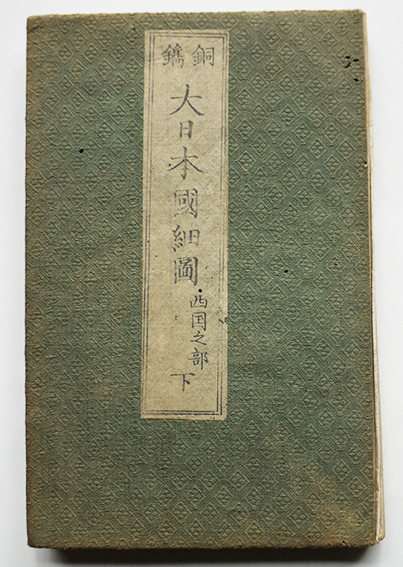 銅鐫
大日本國細圖
西国之部
下